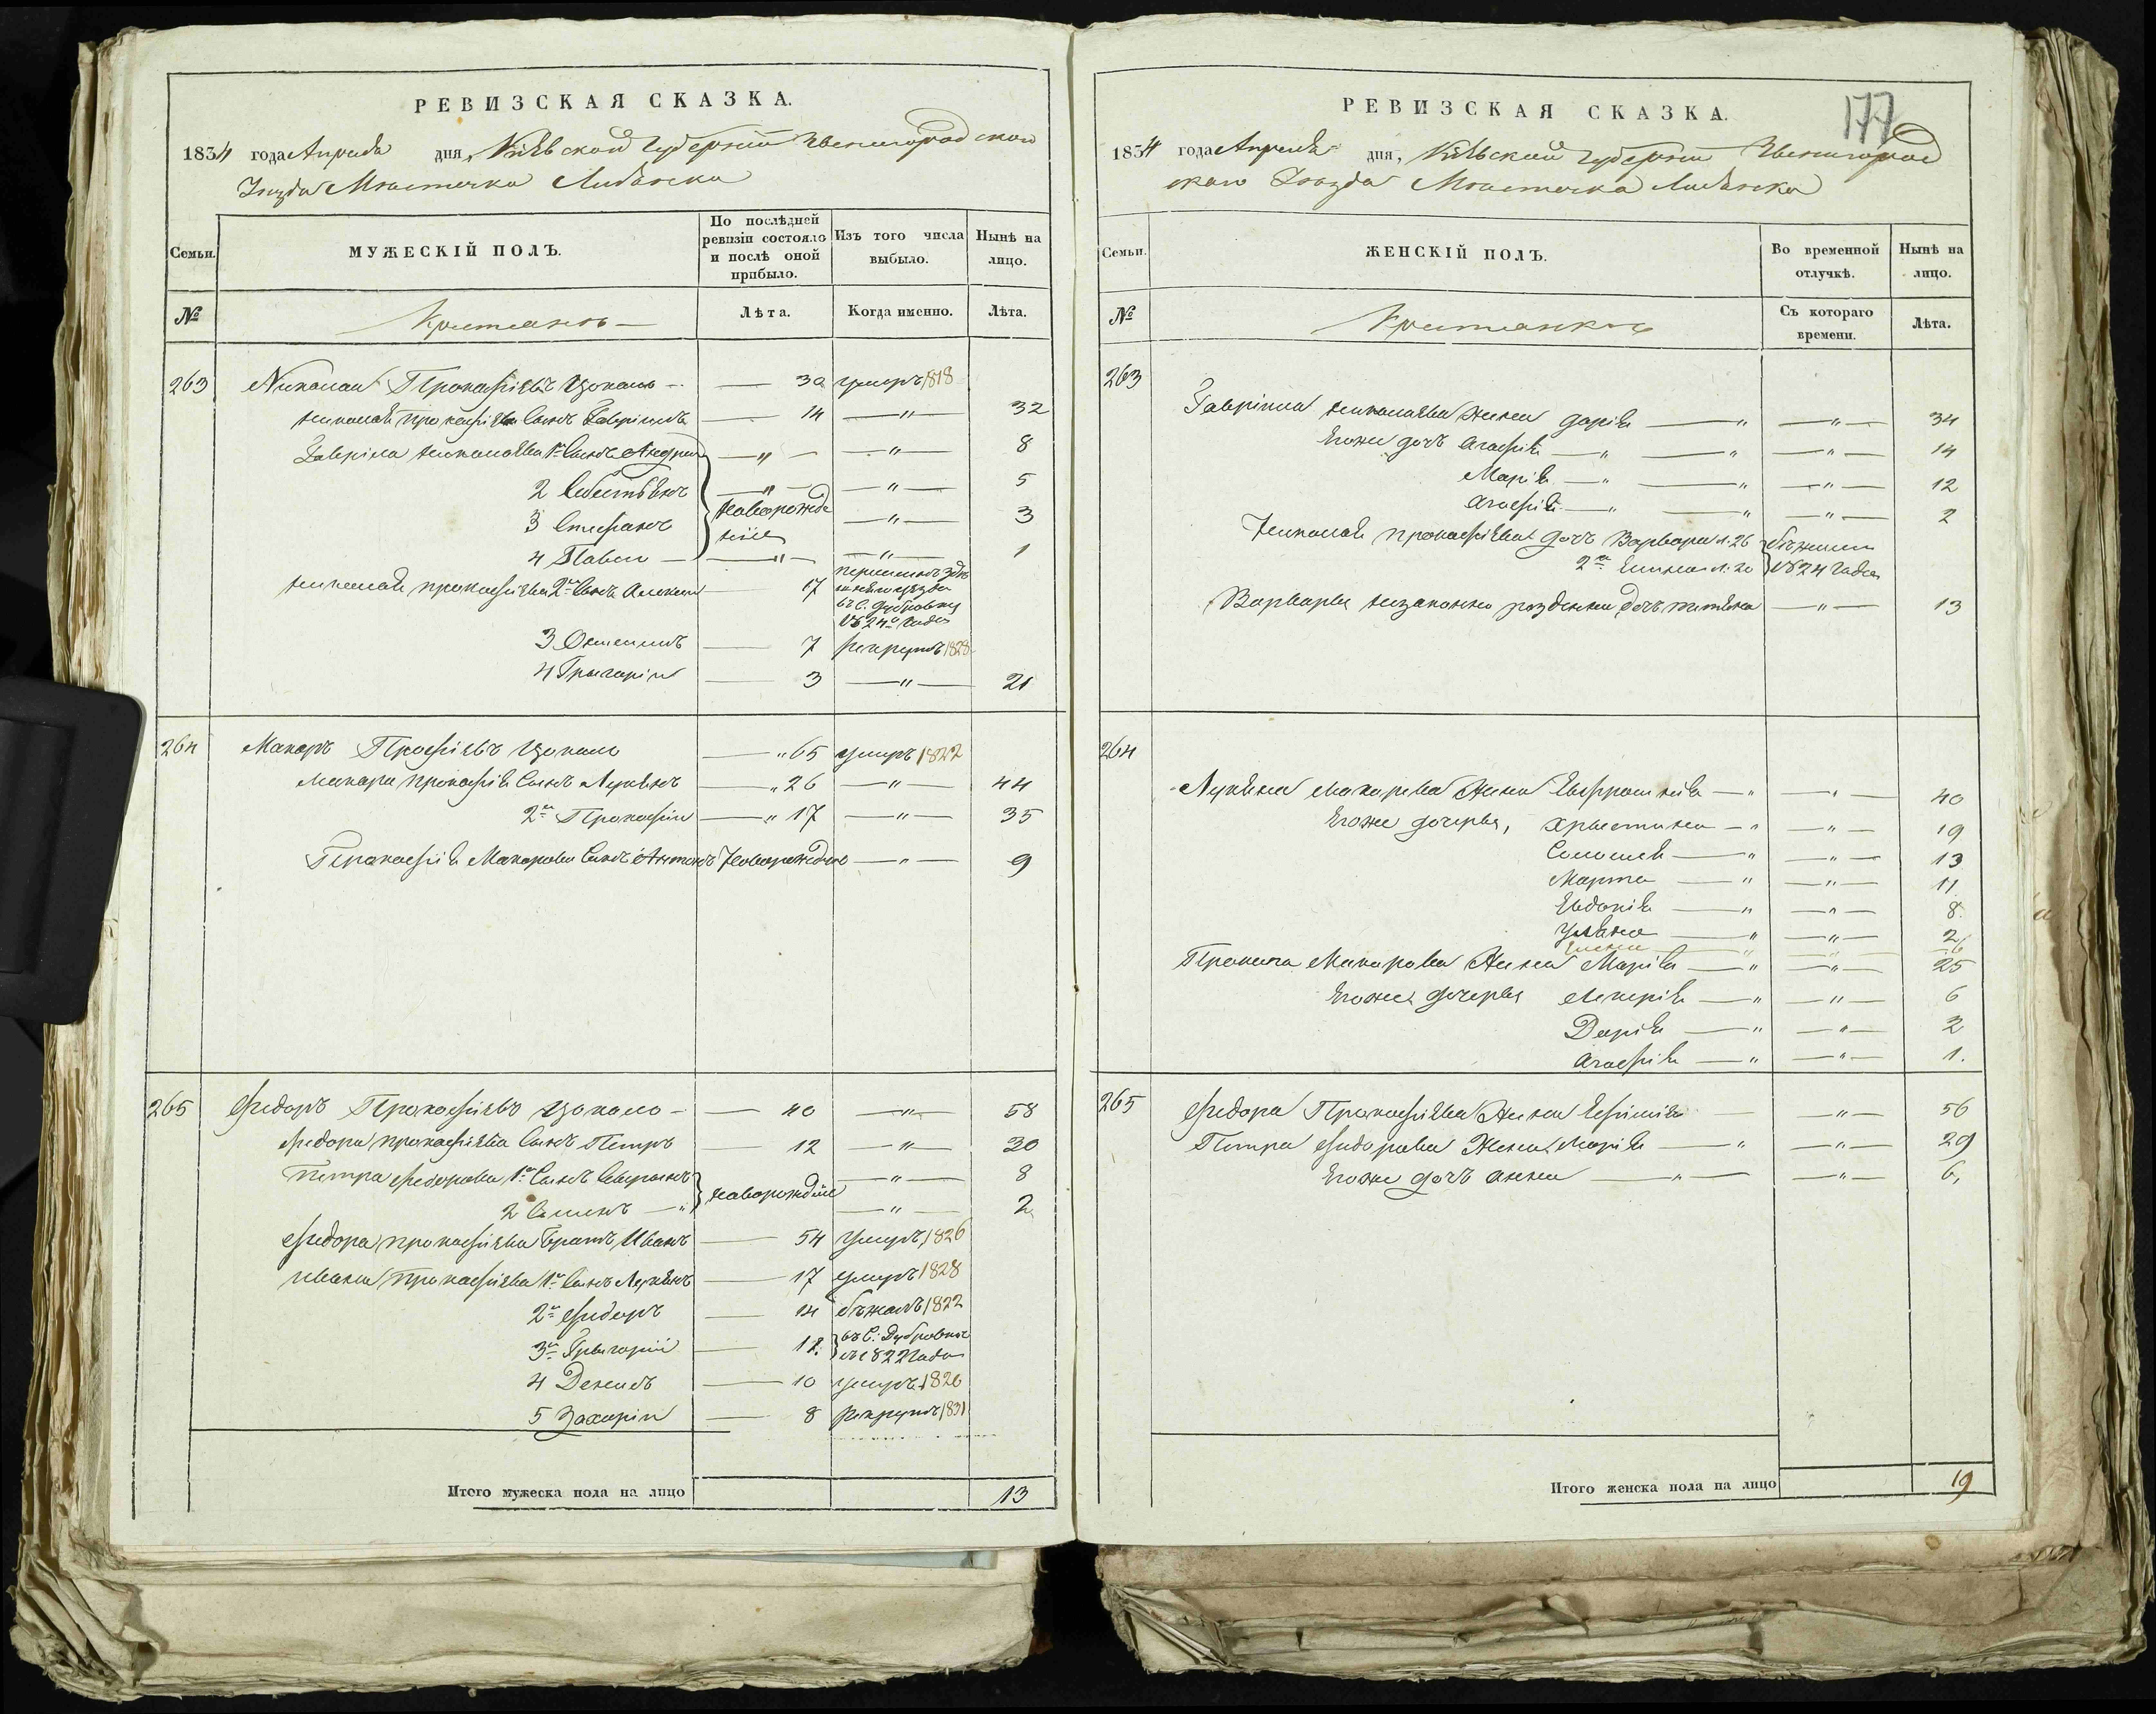 РЕВИЗСКАЯ СКАЗКА.
1834 года Апреля дня, Кіевской Губерніи Звенигородского
Уезда Местечка Лисянка
Семьи. МУЖЕСКІЙ ПОЛЪ. По послѣдней ревизіи состояло и послѣ оной прибыло. Изъ того числа выбыло. Нынѣ на лицо.
№ Крестьянъ Лѣта. Когда именно. Лѣта.
263 Николай Прокофіевъ Цоколо 30 умеръ 1818
Николая Прокофіева Сынъ Гавріилъ 14 — " — 32
Гавріила Николаева 1й Сынъ Андрей — " — — " — 8
2 Себестьянъ — " — — " — 5
новорожде
3 Стефанъ нiие — " — 3
4 Павел — " — — " — 1
Николая Прокофіева 2й Сынъ Алексей 17
въ С. Дубровку
1824 года
3 7 рекрутъ 1828
4 Григорій 3 — " — 21
264 Макаръ Прокофіевъ Цоколо 65 умеръ 1822
Макара Прокофія Сынъ Лукянъ 26 — " — 44
2й Прокофій 17 — " — 35
Прокофія Макарова Сынъ Антонъ Новорожденъ — " — 9
265 Фидоръ Прокофіевъ Цоколо 40 — " — 58
Фидора Прокофіева Сынъ Петръ 12 — " — 30
Петра Федорова 1й Сынъ — " — 8
новорождніе
2 Симонъ — " — 2
Фидора Прокофіева Братъ Иванъ 54 умеръ 1826
Ивана Прокофіева 1й Сынъ Лукянъ 17 умеръ 1828
2й Фидоръ 14 бежалъ 1822
3й Григорій 12. въ С. Дубровки
съ 1822 года
4 Денисъ 10 умеръ 1826
5 Захарій 8 рекрутъ 1831
Итого мужеска пола на лицо 13
177
РЕВИЗСКАЯ СКАЗКА.
1834 года Апреля дня, Кіевской Губерніи Звенигород
ского Уезда Местечка Лисянка
Семьи. ЖЕНСКІЙ ПОЛЪ. Во временной отлучкѣ. Нынѣ на лицо.
№ Крестьянокъ Съ котораго времени. Лѣта.
263
Гавріила Николаева Жена Дарія — " — 34
Егоже дочь Агафія — " — — " — 14
Марія — " — — " — 12
Агафія — " — — " — 2
Николая Прокофіева дочь Варвара л. 26 бежали
2я л. 20 1824 года
Варвары незаконно розденна дочь Тетяна — " — 13
264
Лукяна Макарева Жена Евфросинія — " — 40
Егоже дочерья, Христина — " — 19
Соломея — " — 13
Марта — " — 11
Евдокія — " — 8.
Уляна — " — 2
Елена 6
Макарова Жена Марія — " — 25
Егоже дочерья — " — 6
Дарія — " — 2
Агафія — " — 1.
265 Фидора Прокофіева Жена Ефимія — " — 56
Петра Фидорова Жена Марія — " — 29
Егоже дочь Анна — " — 6,
Итого женска пола на лицо 19